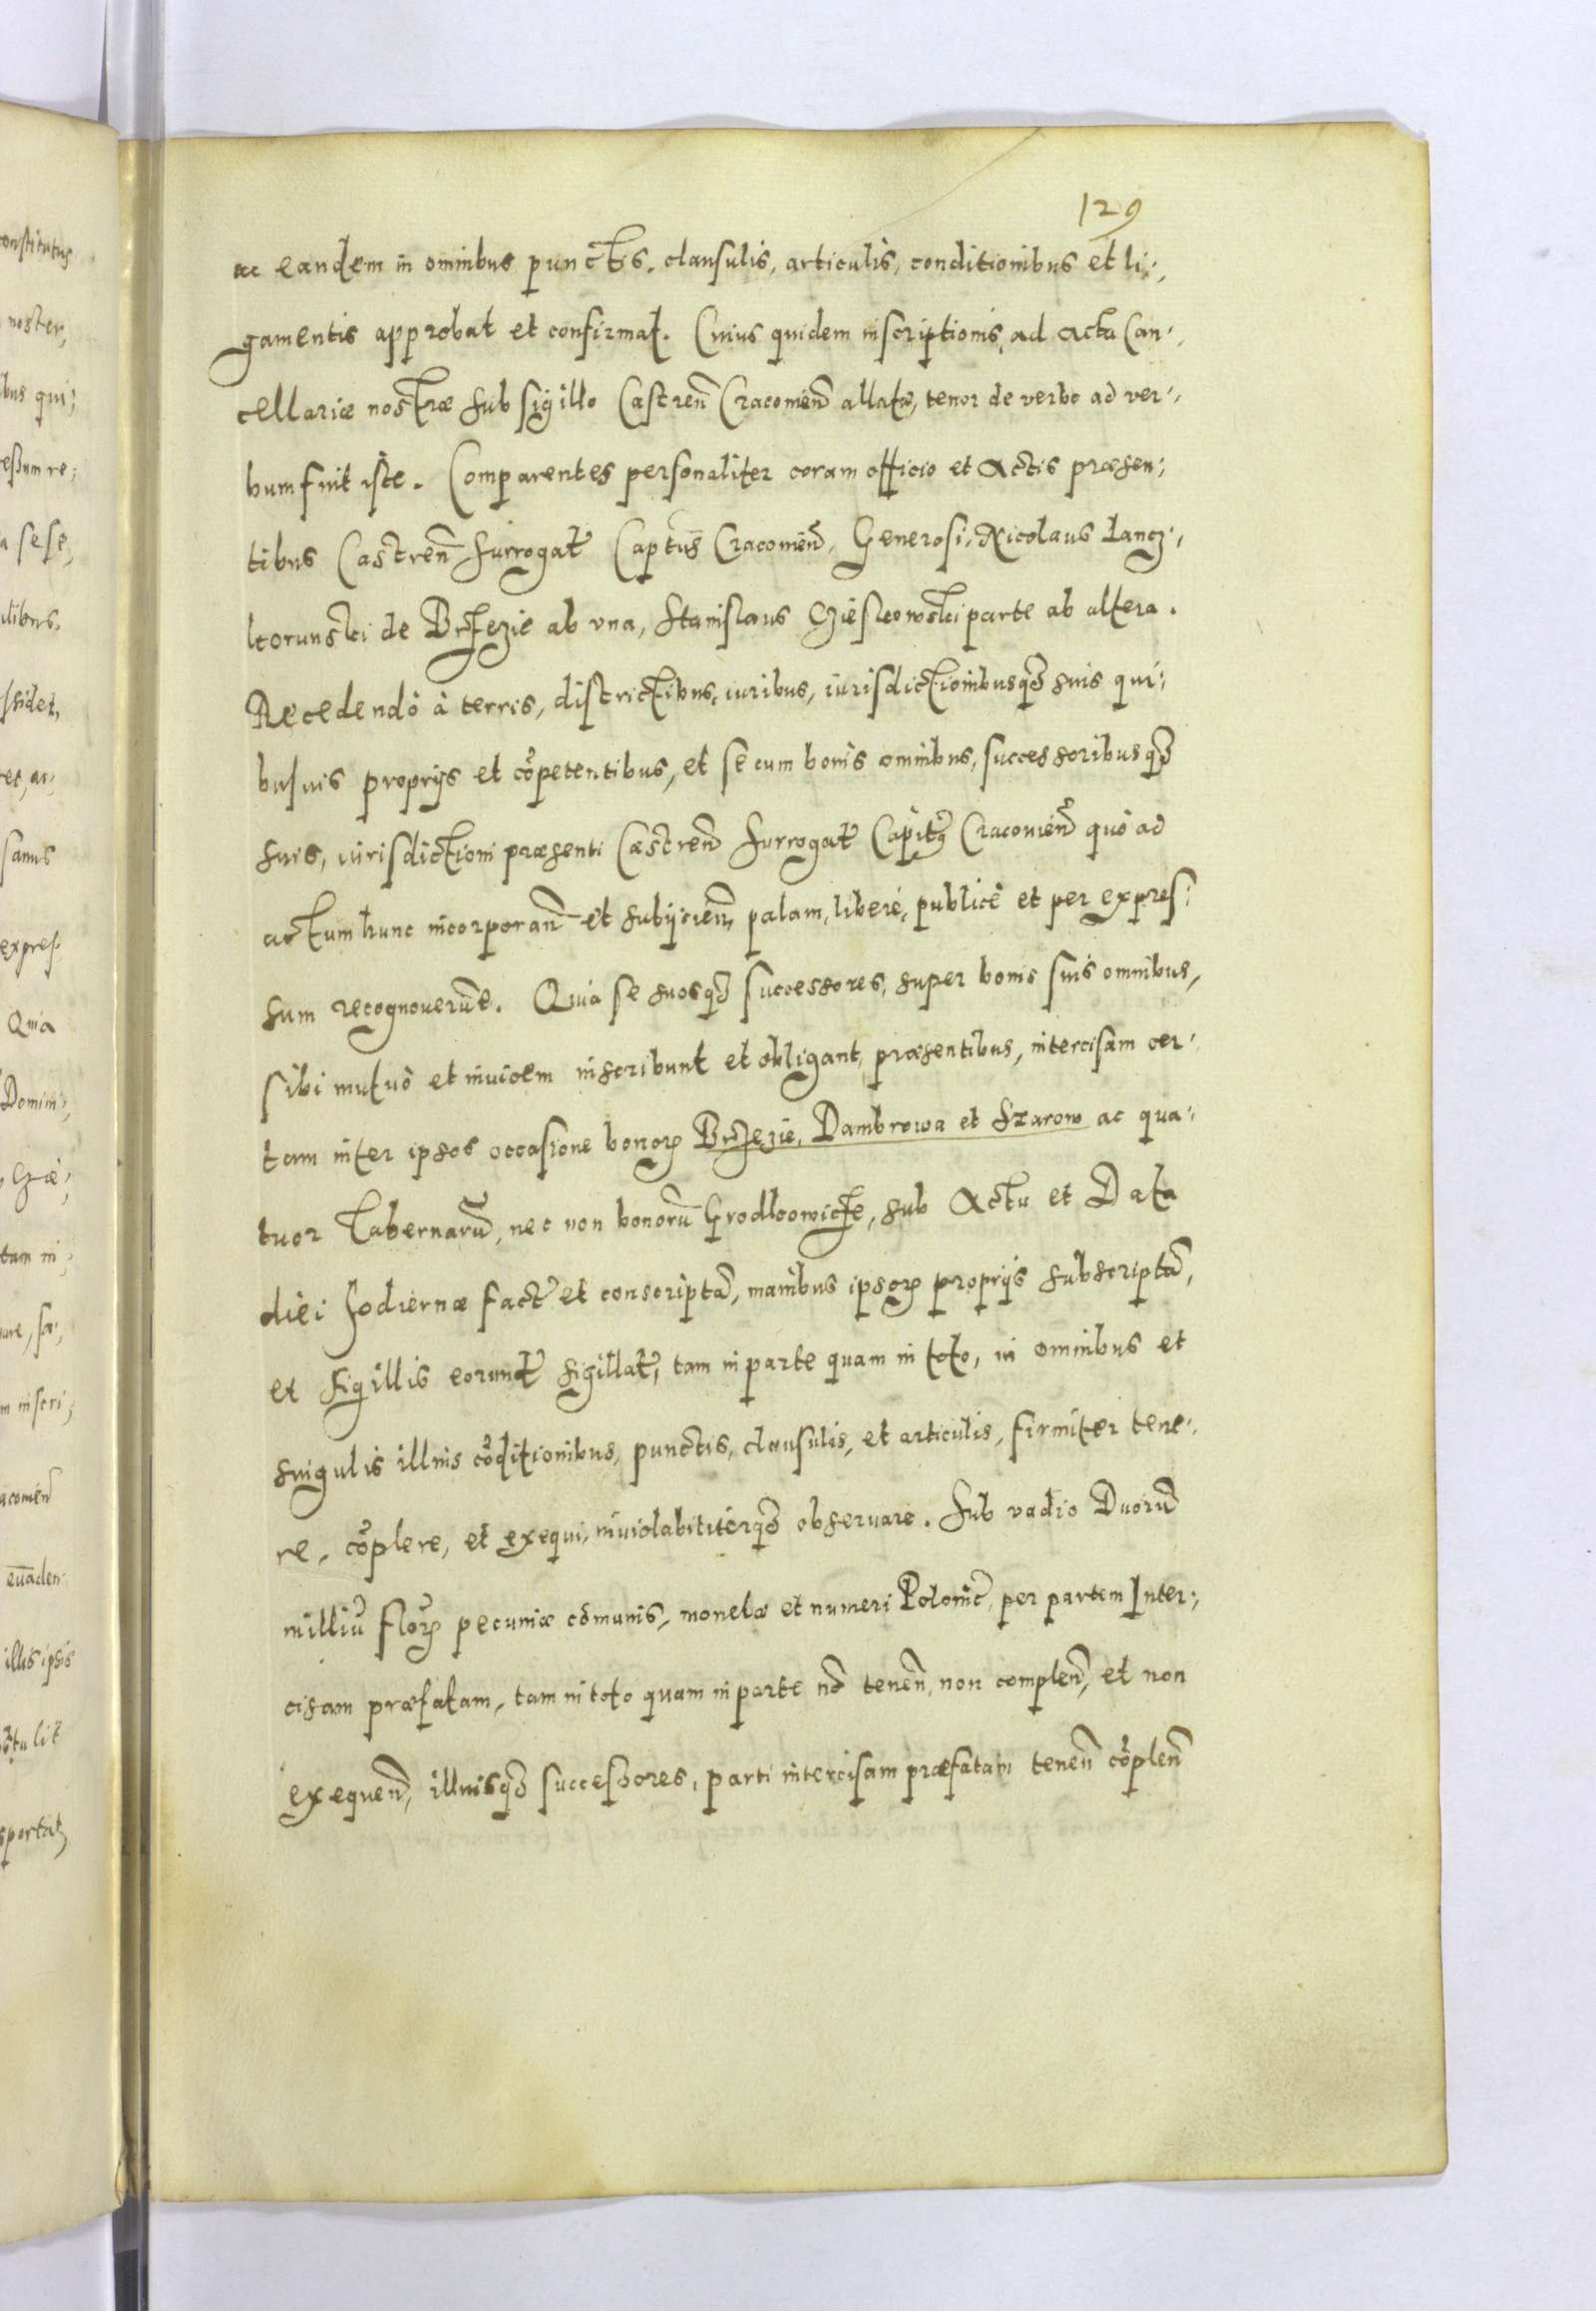 129
ac eandem in omnibus punctis, clausulis, articulis, conditionibus et li¬
gamentis approbat et confirmat. Cuius quidem inscriptionis, ad acta Can¬
cellariæ nostræ sub sigillo Castren̄ Cracouien̄ allatæ, tenor de verbo ad ver¬
bum fuit iste. Comparentes personaliter coram officio et Actis præsen¬
tibus Castren̄ surrogat̄ Capt̄us Cracouien̄, Generosi, Nicolaus Lancz¬
korunski de Brzezie ab vna, Stanislaus Czieskowski parte ab altera.
Recedendo à terris, districtibus, iuribus, iurisdictionibusq̄ suis qui¬
busuis proprijs et cōpetentibus, et se cum bonis omnibus, successoribusq̄
suis, iurisdictioni præsenti Castren̄ surrogat̄ Capit̄ Cracouien̄ quò ad
actum hunc incorporan̄ et subijcien̄, palam, liberè, publicè et per expres¬
sum recognouerūt. Quia se suosq̄ successores, super bonis suis omnibus,
sibi mutuò et inuicem inscribunt et obligant, præsentibus, intercisam cer¬
tam inter ipsos occasione bonoꝝ Brzezie, Dambrowa et Szarow ac qua¬
tuor Tabernarū, nec non bonorū Grodkowicze, sub Actu et Data
diei hodiernæ fact̄ et conscriptā, manibus ipsoꝝ proprijs subscriptā,
et sigillis eorund̄ sigillat̄, tam in parte quam in toto, in omnibus et
singulis illius cōditionibus, punctis, clausulis, et articulis, firmiter tene¬
re, cōplere, et exequi, inuiolabiliterq̄ obseruare. Sub vadio Duorū
milliū floꝝ pecuniæ cōmunis, monetæ et numeri Polonic̄, per partem Inter¬
cisam præfatam, tam in toto quam in parte nō tenen̄, non complen̄, et non
exequen̄, illiusq̄ successores, parti intercisam præfatam tenen̄ cōplen̄